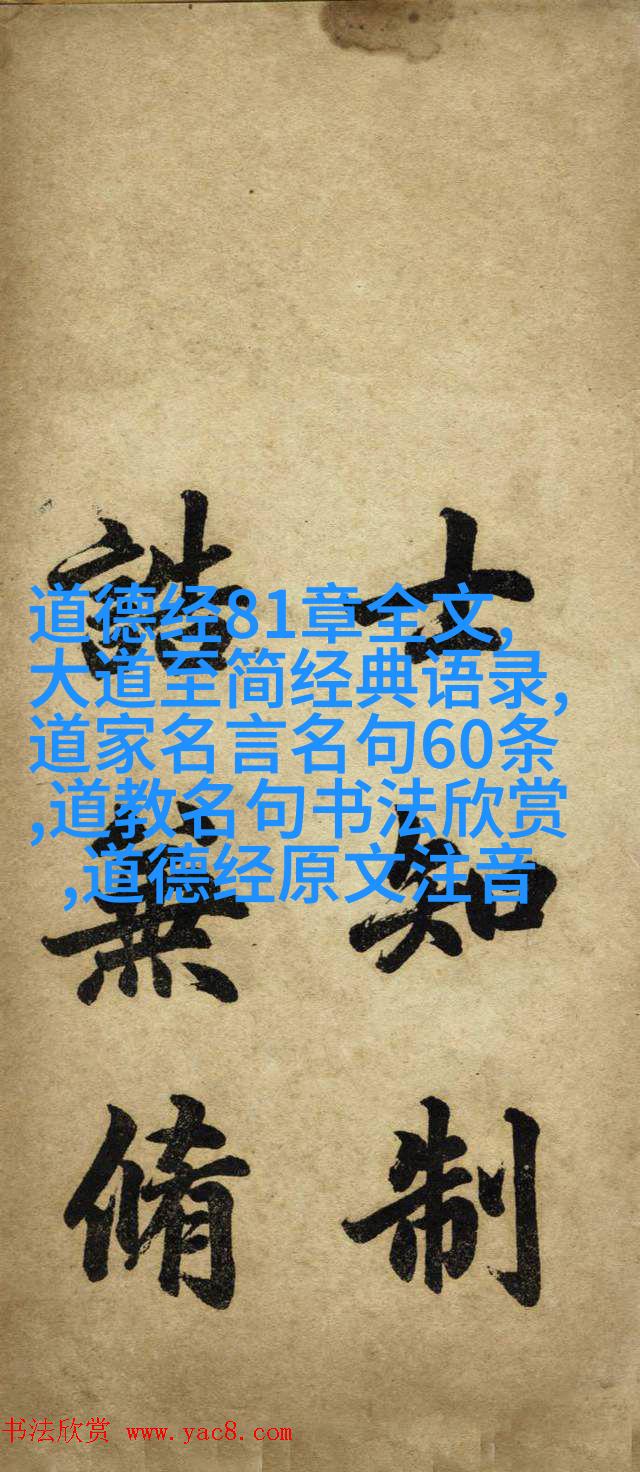 道德经81章全文,
大道至简经典语录,
道家名言名句60条
,道教名句书法欣赏
,道德经原文注音
士知制
誥兼脩
书法欣赏 www.yac8.com